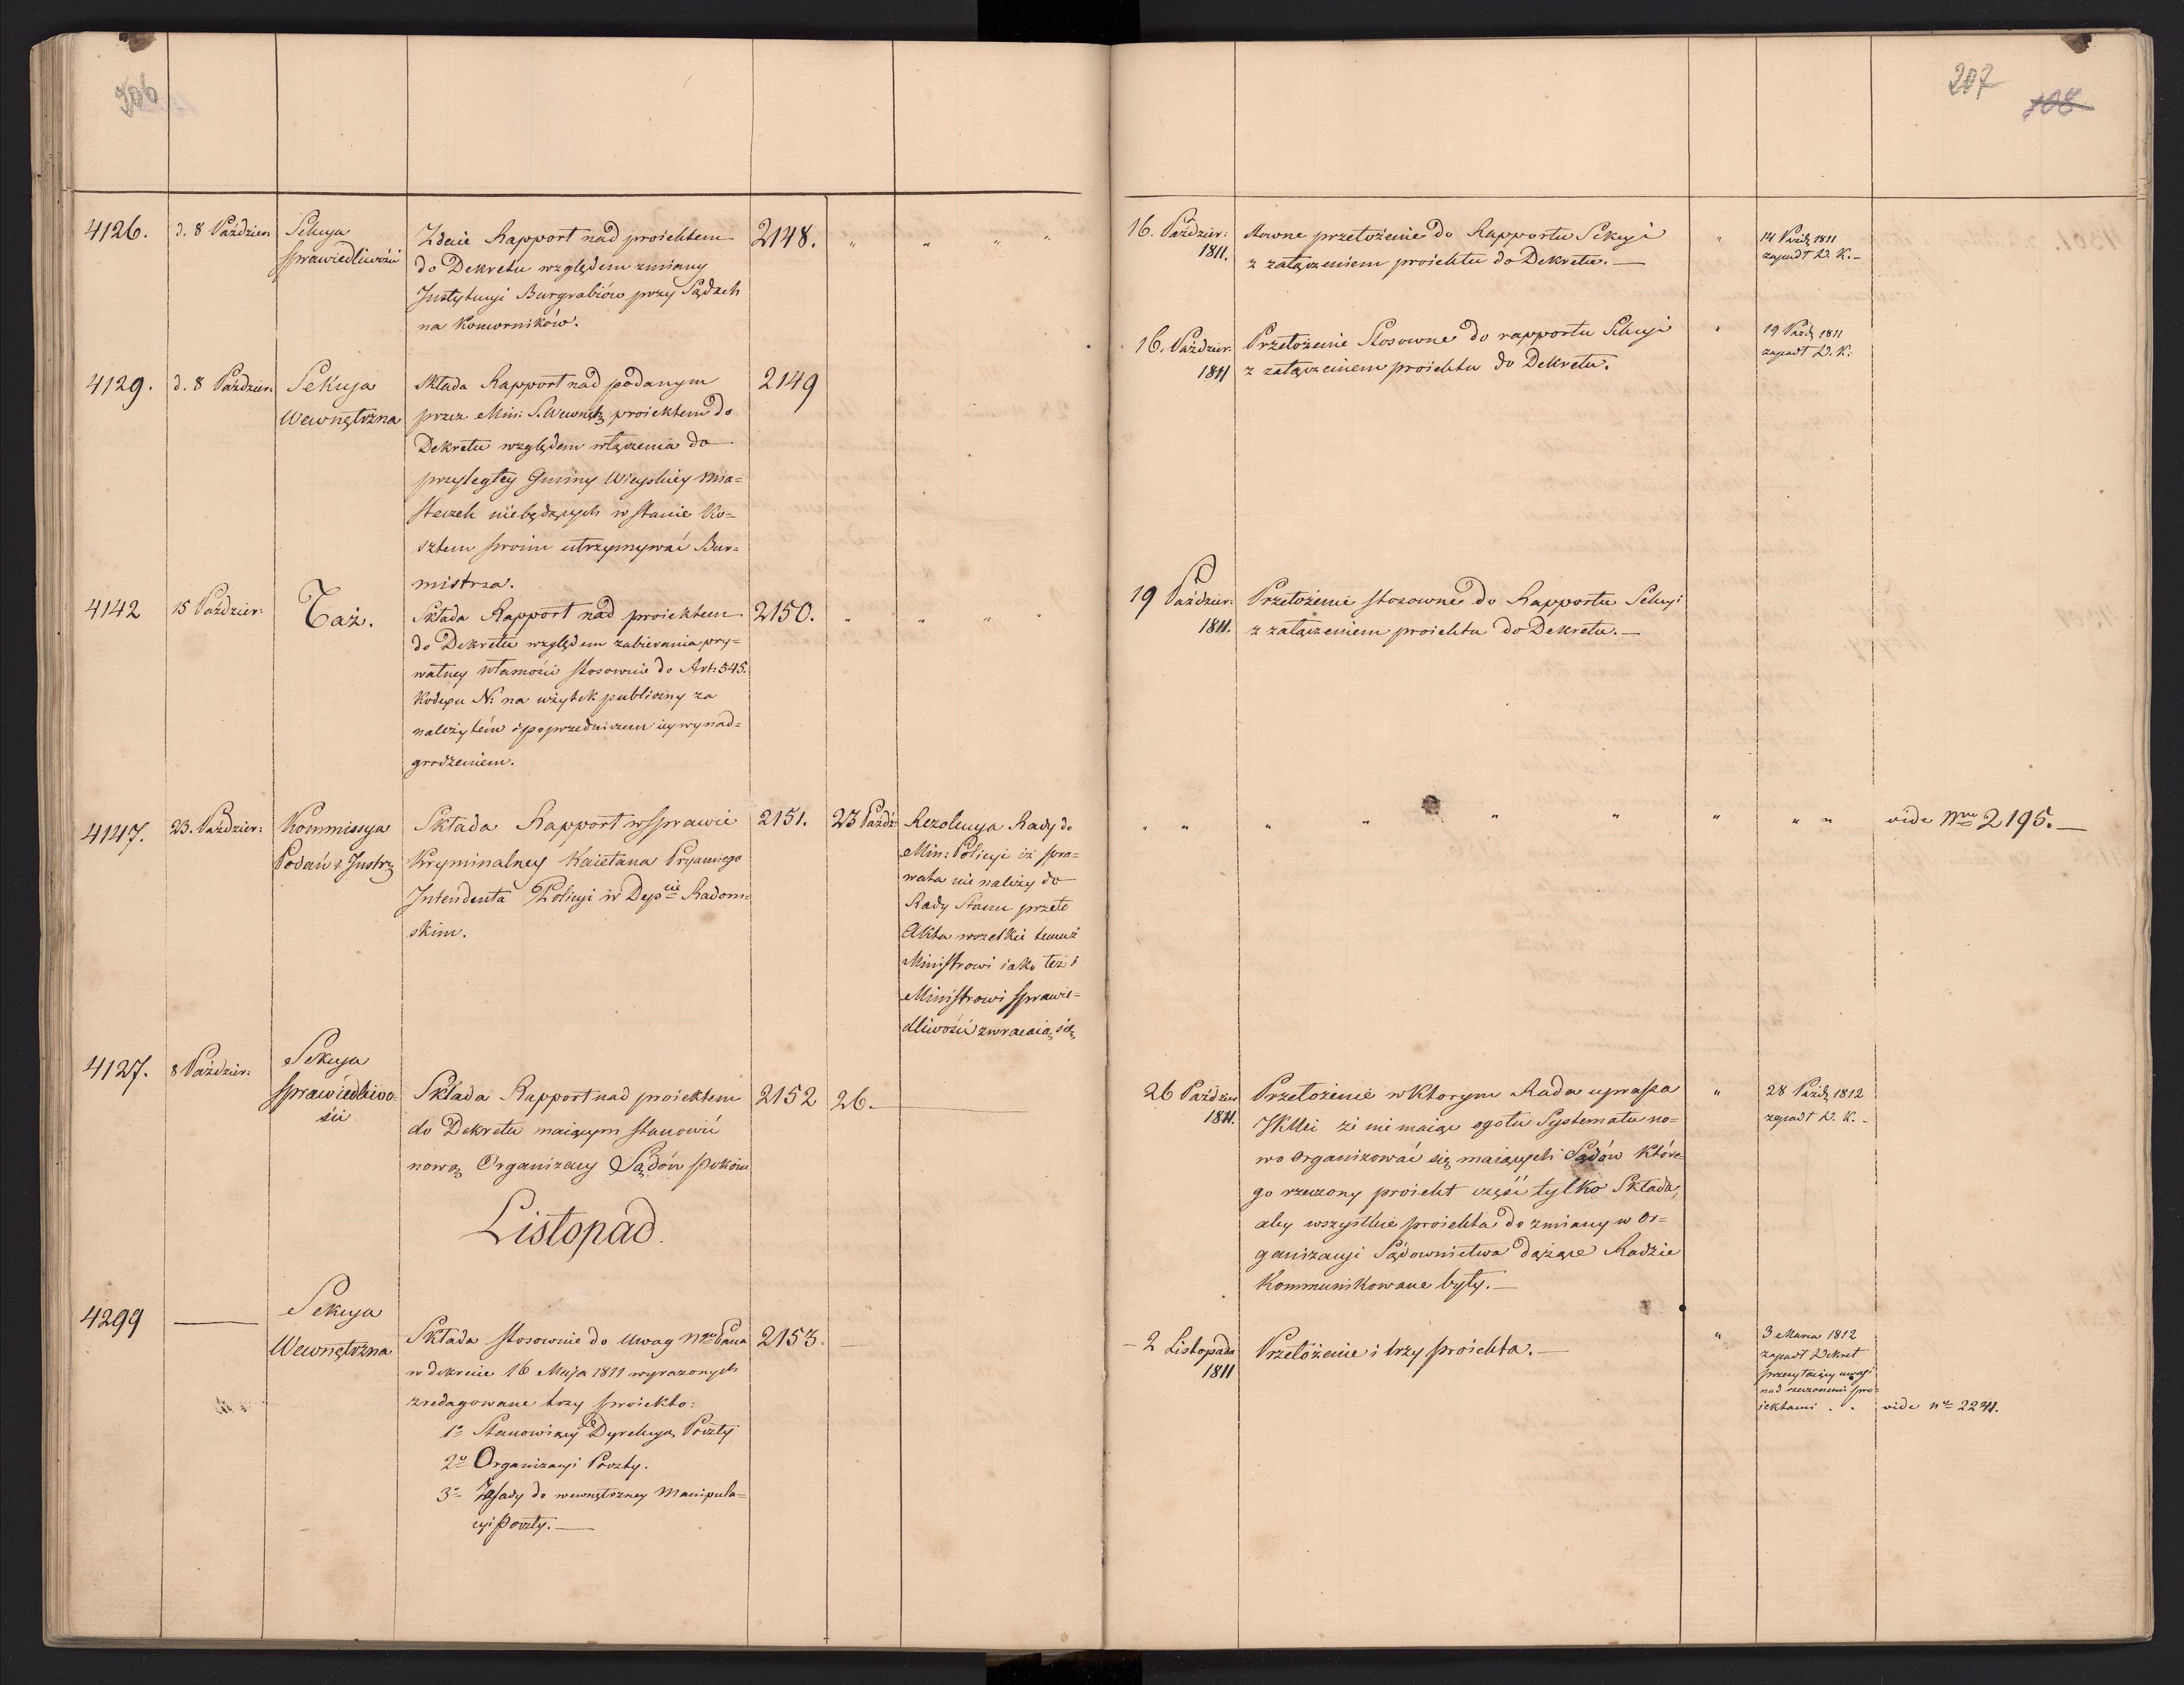 206
4126.
d. 8 Paździer:
Sekcya
sprawiedliwości
Zdaie Rapport nad proiektem
do Dekretu względem zmiany
Instytucyi Burgrabiów przy Sądach
na Komorników.
2148.
" " " "
4129.
d. 8 Paździer:
Sekcya
Wewnętrzna
składa Rapport nad podanym
przez Min: S. Wewnętz proiektem do
Dekretu względem włączenia do
przyległey Gminy Wieyskiey mia=
steczek niebędących w stanie Ko=
sztem swoim utrzymywać Bur=
mistrza.
2149
4142
15 Paździer:
Taż.
Składa Rapport nad proiektem
do Dekretu względem zabierania pry=
watney własności stosownie do Art: 545.
Kodexu N: na użytek publiczny za
należytém i poprzedniczem iey wynad=
grodzeniem.
2150.
" " " "
4147.
23. Paździer:
Kommissya
Podań i Instr:
Składa Rapport w sprawie
Kryminalney Kaietana
Intendenta Policyi w Depcie Radom=
skim.
2151.
23 Paźdź:
Rezolucya Rady do
Min: Policyi iż spra=
wa ta nie należy do
Rady Stanu przeto
Akta wszelkie temuż
Ministrowi iako też i
Ministrowi Sprawie=
dliwości zwracaią się
4127.
8 Paździer:
Sekcya
Sprawiedliwo=
ści
Składa Rapport nad proiektem
do Dekretu maiącym stanowić
nową Organizacyę Sądów Pokoiu
2152
26.
Listopad.
4299
Sekcya
Wewnętrzna
Składa stosownie do Uwag Ngo Pana
w dekrecie 16 Maja 1811 wyrazonych
zredagowane trzy proiekta:
1o Stanowiący Dyrekcyą Poczty
2o Organizacyi Poczty.
3o Zasady do wewnętrzney Manipula=
cyi Poczty.
2153.
207
108
16. Paździer:
1811.
stowne przełożenie do Rapportu Sekcyi
z załączeniem proiektu do Dekretu.
"
14 Paźdź 1811
zapadł D. K.
16. Paździer:
1811
Przełożenie Stosowne do rapportu Sekcyi
z załączeniem proiektu do Dekretu.
"
19 Paźdź 1811
zapadł D. K.
19 Paździer:
1811.
Przełożenie stosowne do Rapportu Sekcyi
z załączeniem proiektu do Dekretu.
" " " " " " " " "
vide Nru 2195.
26 Paździer
1811.
Przełożenie w Ktorym Rada uprasza
JKMci że nie maiąc ogołu Systematu no=
wo Organizować się maiących Sądów Które=
go rzeczony proiekt część tylko Składa,
aby wszystkie proiekta do zmiany w Or=
ganizacyi Sądownictwa dążące Radzie
Kommunikowane były.
"
28 Paźdź 1812
zapadł D. K.
2 Listopada
1811
Przełożenie i trzy proiekta.
"
3 Marca 1812
zapadł Dekret
przesyłaiący uwagi
nad rzeczonemi pro=
iektami . .
vide Nr